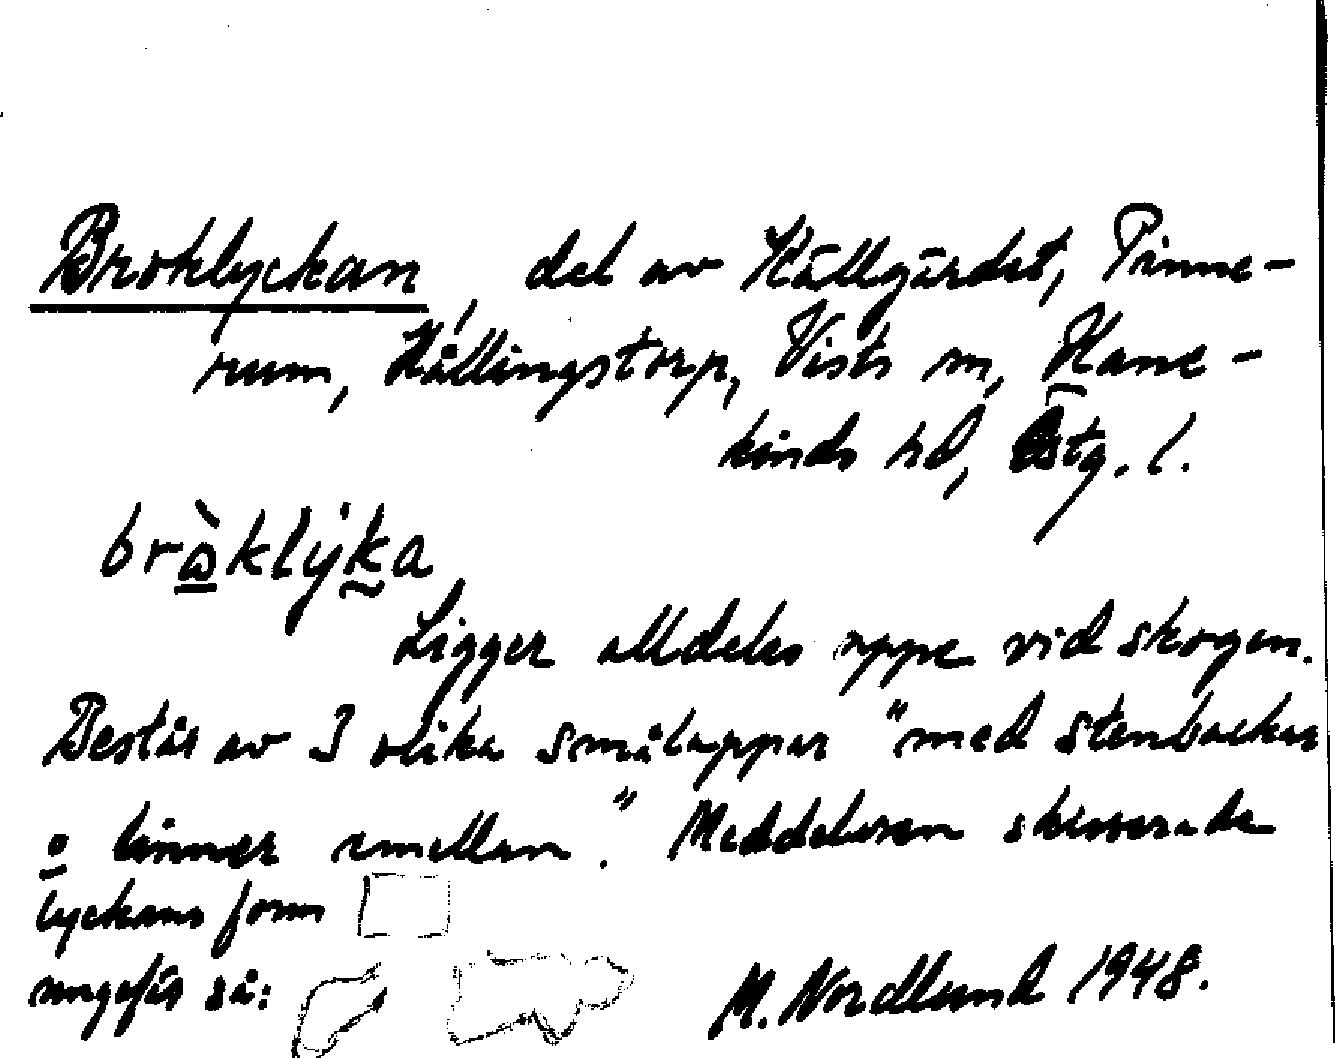 Broklyckan, del av Källgärdet, Pinne-
rum, Källingstorp, Vists sn, Hane-
kinds hd, Östg. l.
bràklỳka
Ligger alldeles uppe vid skogen.
Består av 3 olika smålappar "med stenbackar
o linner emellan." Meddelaren skisserade
lyckans form
ungefär så:
M. Nordlund 1948.